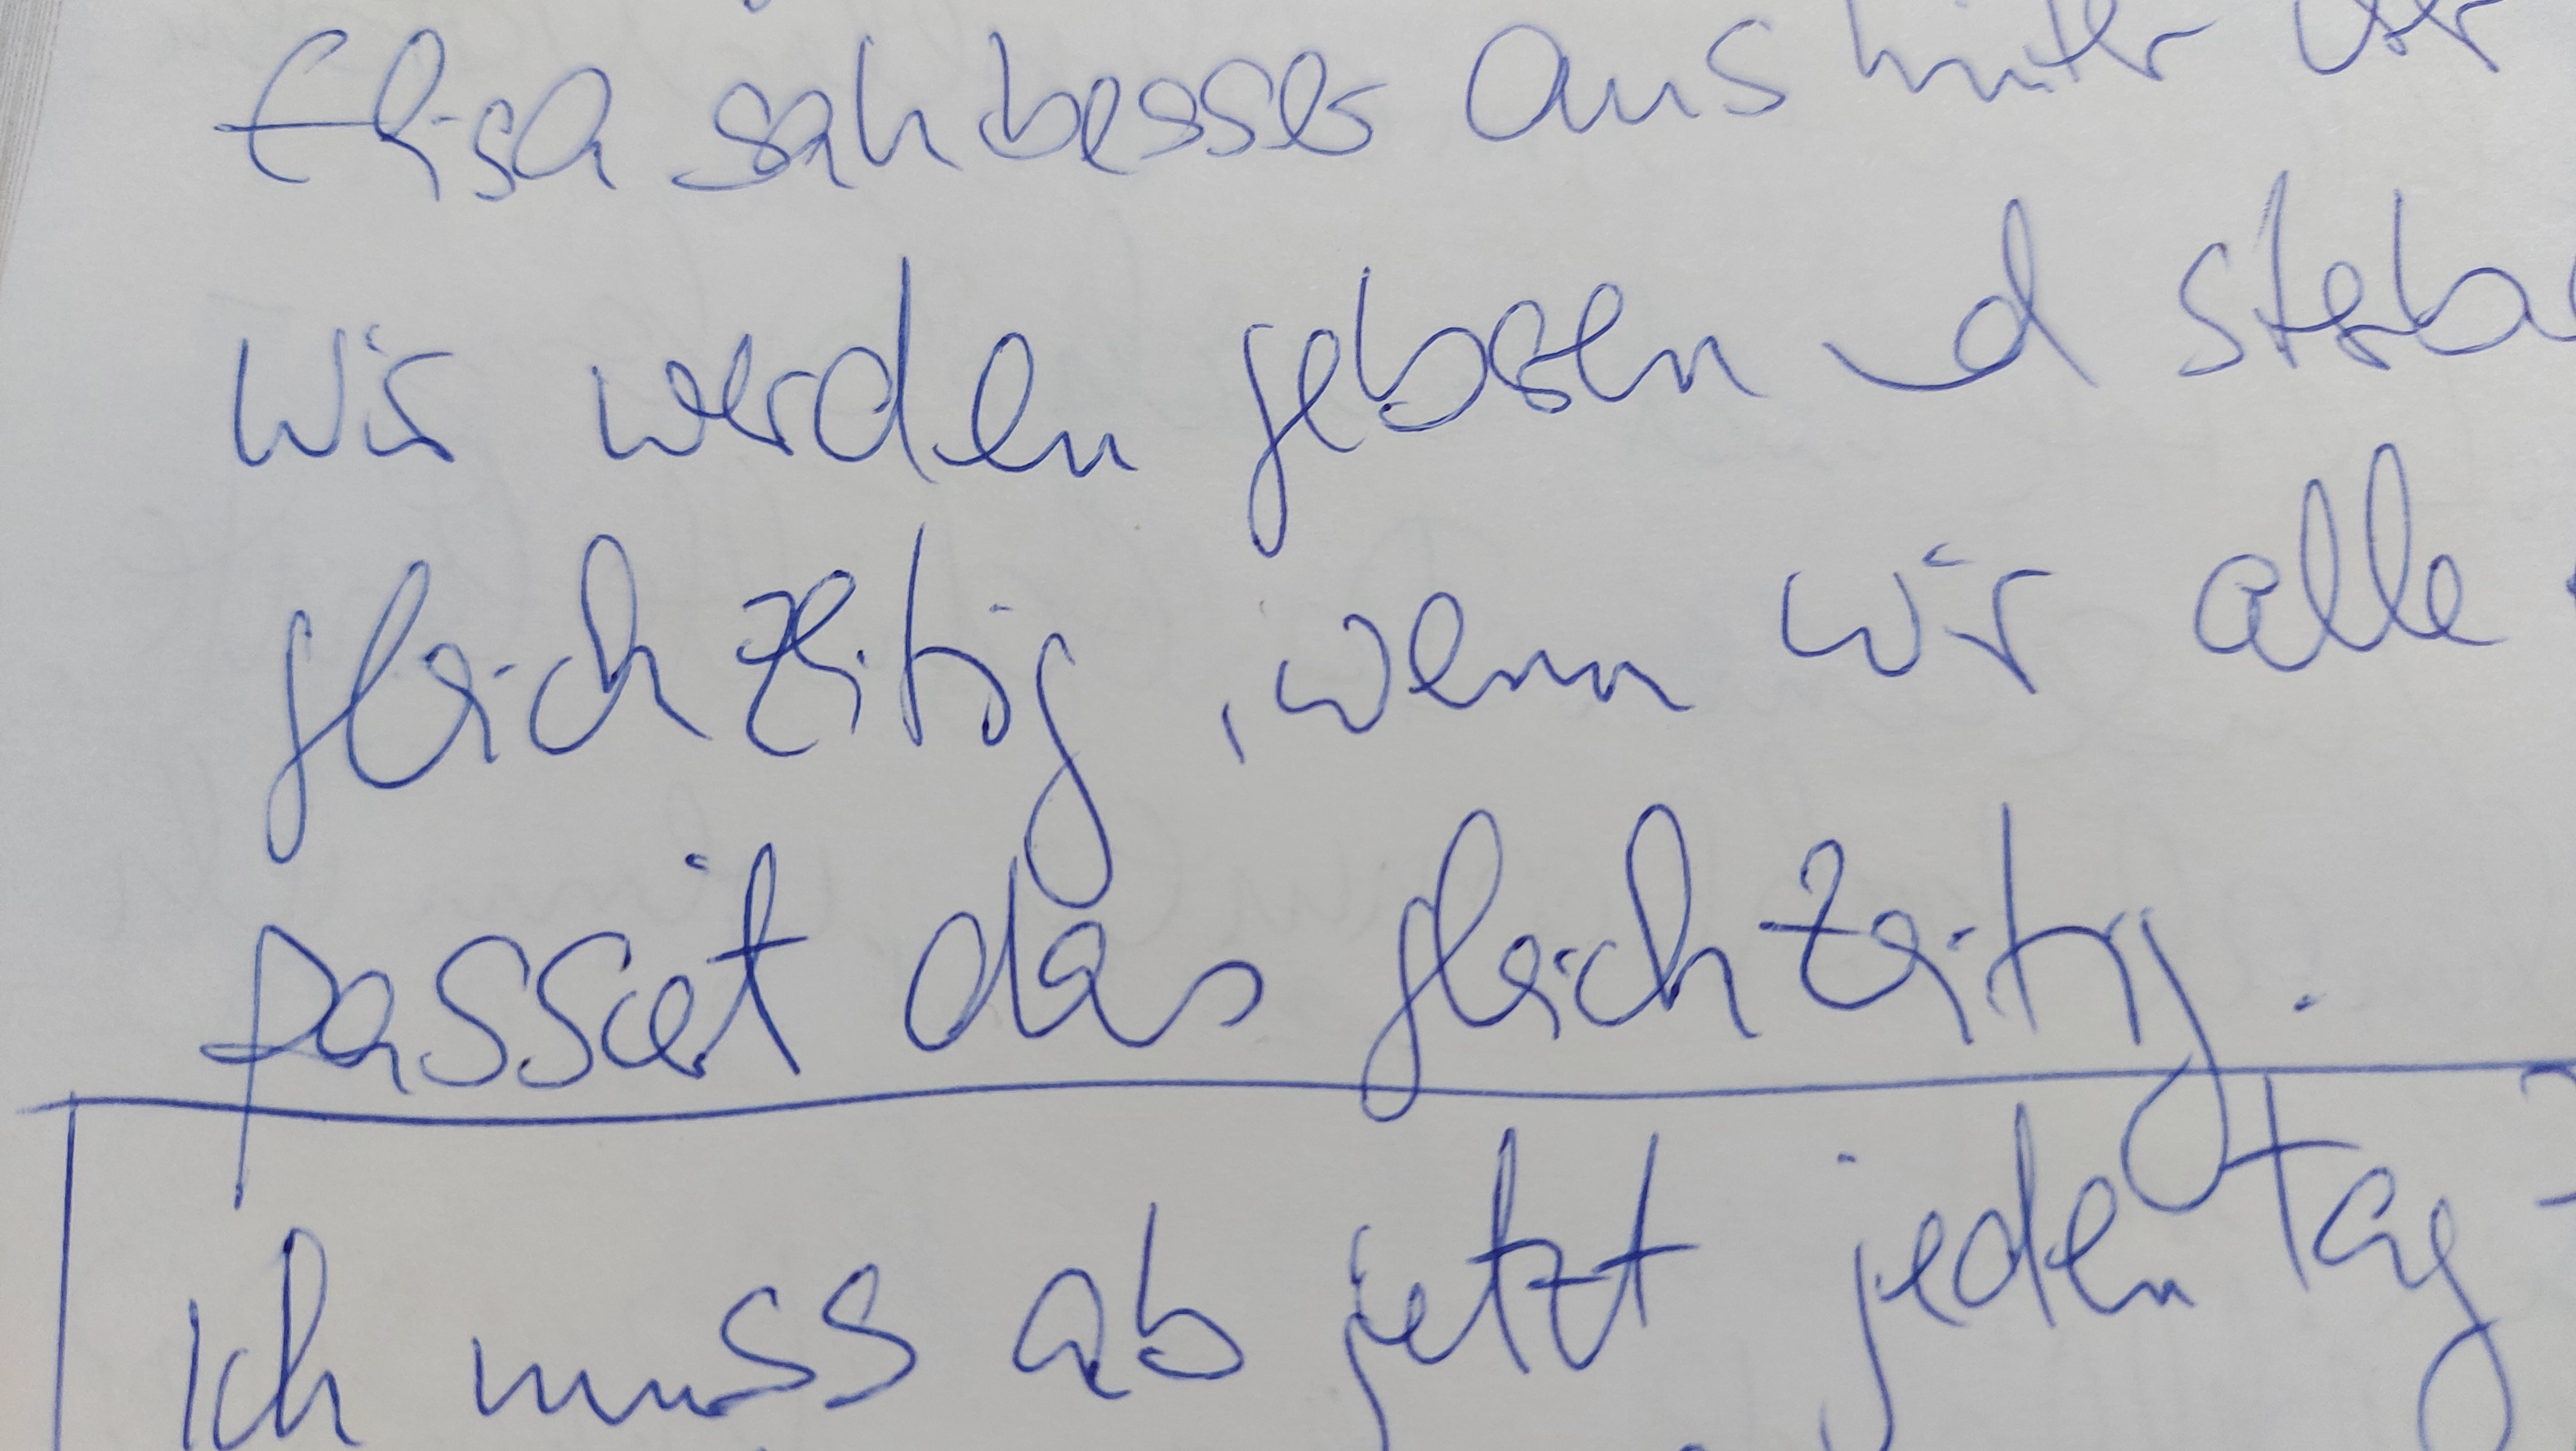 Elisa sah besser aus hinter der
Wir werden geboren und sterben
gleichzeitig, wenn wir alle
passiert das gleichzeitig.
Ich muss ab jetzt jeden Tag